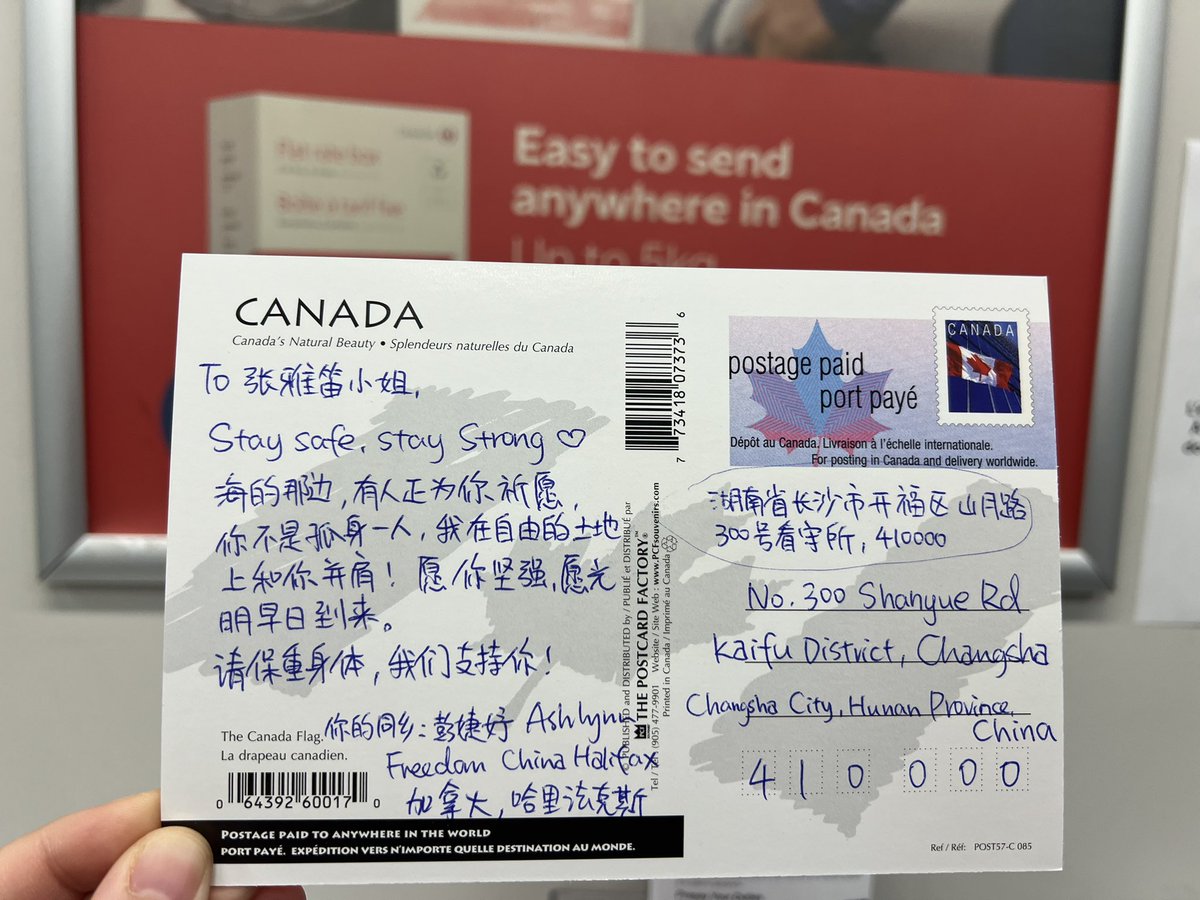 Flat rate box
Easy to send
anywhere in Canada
Up to 5kg
CANADA
Canada's Natural Beauty • Splendeurs naturelles du Canada
To 张雅笛小姐,
Stay safe, stay Strong ♡
海的那边,有人正为你祈愿,
你不是孤身一人,我在自由的土地
上和你并肩!愿你坚强,愿光
明早日到来。
请保重身体,我们支持你!
你的同乡:彭婕妤 Ashlynn
Freedom China Halifax
加拿大,哈里法克斯
The Canada Flag.
La drapeau canadien.
0 64392 60017 0
POSTAGE PAID TO ANYWHERE IN THE WORLD
PORT PAYÉ. EXPÉDITION VERS N'IMPORTE QUELLE DESTINATION AU MONDE.
7 73418 07373 6
© PUBLISHED and DISTRIBUTED by / PUBLIÉ et DISTRIBUÉ par
THE POSTCARD FACTORY™
Tel / Tél (905) 477-9901 Website / Site Web : www.PCFsouvenirs.com
Printed in Canada / Imprimé au Canada
postage paid
port payé
CANADA
Dépôt au Canada. Livraison à l'échelle internationale.
For posting in Canada and delivery worldwide.
湖南省长沙市开福区山月路
300号看守所,410000
No. 300 Shanyue Rd
Kaifu District, Changsha
Changsha City, Hunan Province,
China
410000
Ref / Réf: POST57-C 085